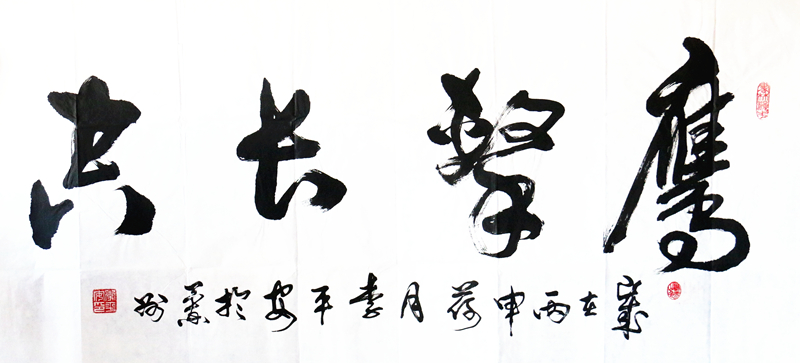 鹰击长空
岁在丙申荷月李平安于兰州